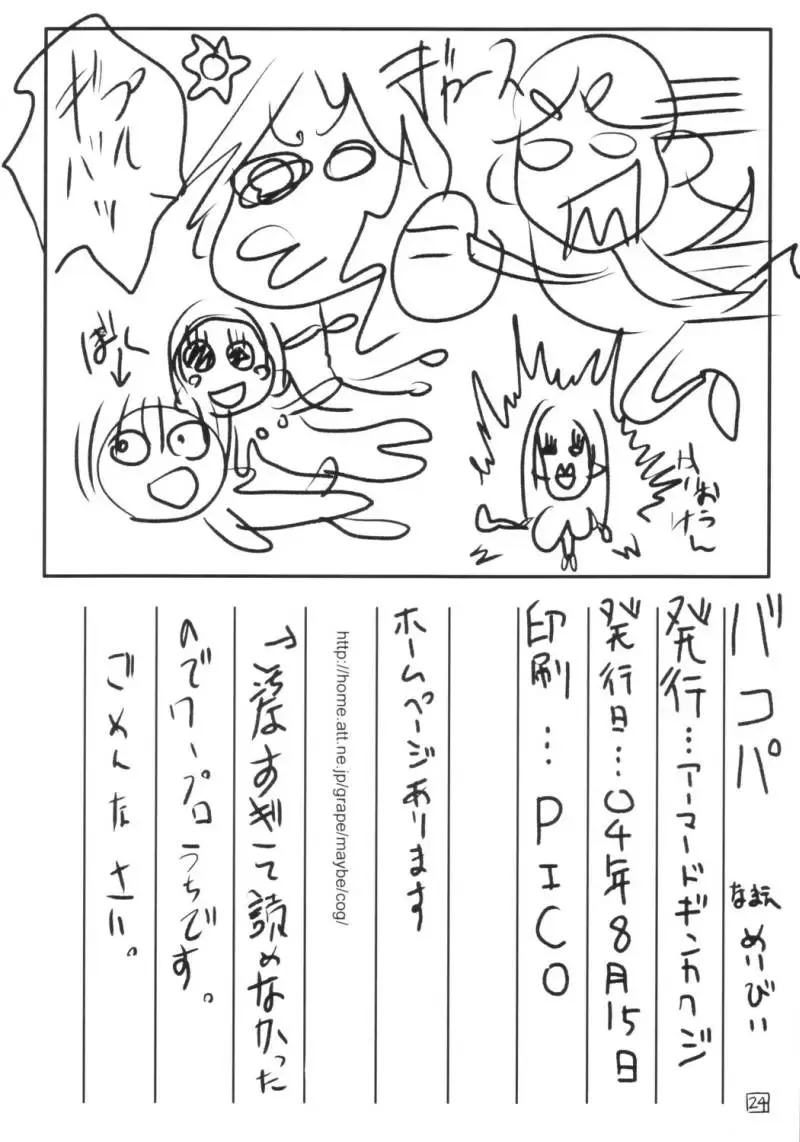 ギャース
ギブルバッ
ばしー
バコパ
なまえ
めいびい
発行…アーマードギンカクジ
発行日…04年8月15日
印刷…PICO
ホームページあります
http://home.att.ne.jp/grape/maybe/cog/
すぎて読めなかった
のでワープロうちです。
ごめんなさい。
24